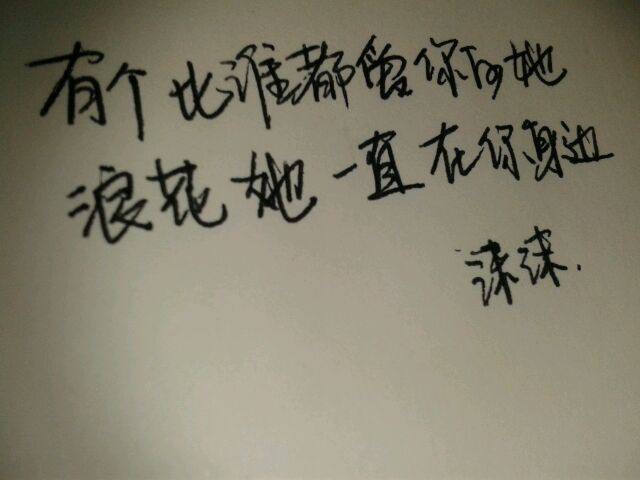 有个比谁都你的她
浪花她一直在你身边
沫沫.